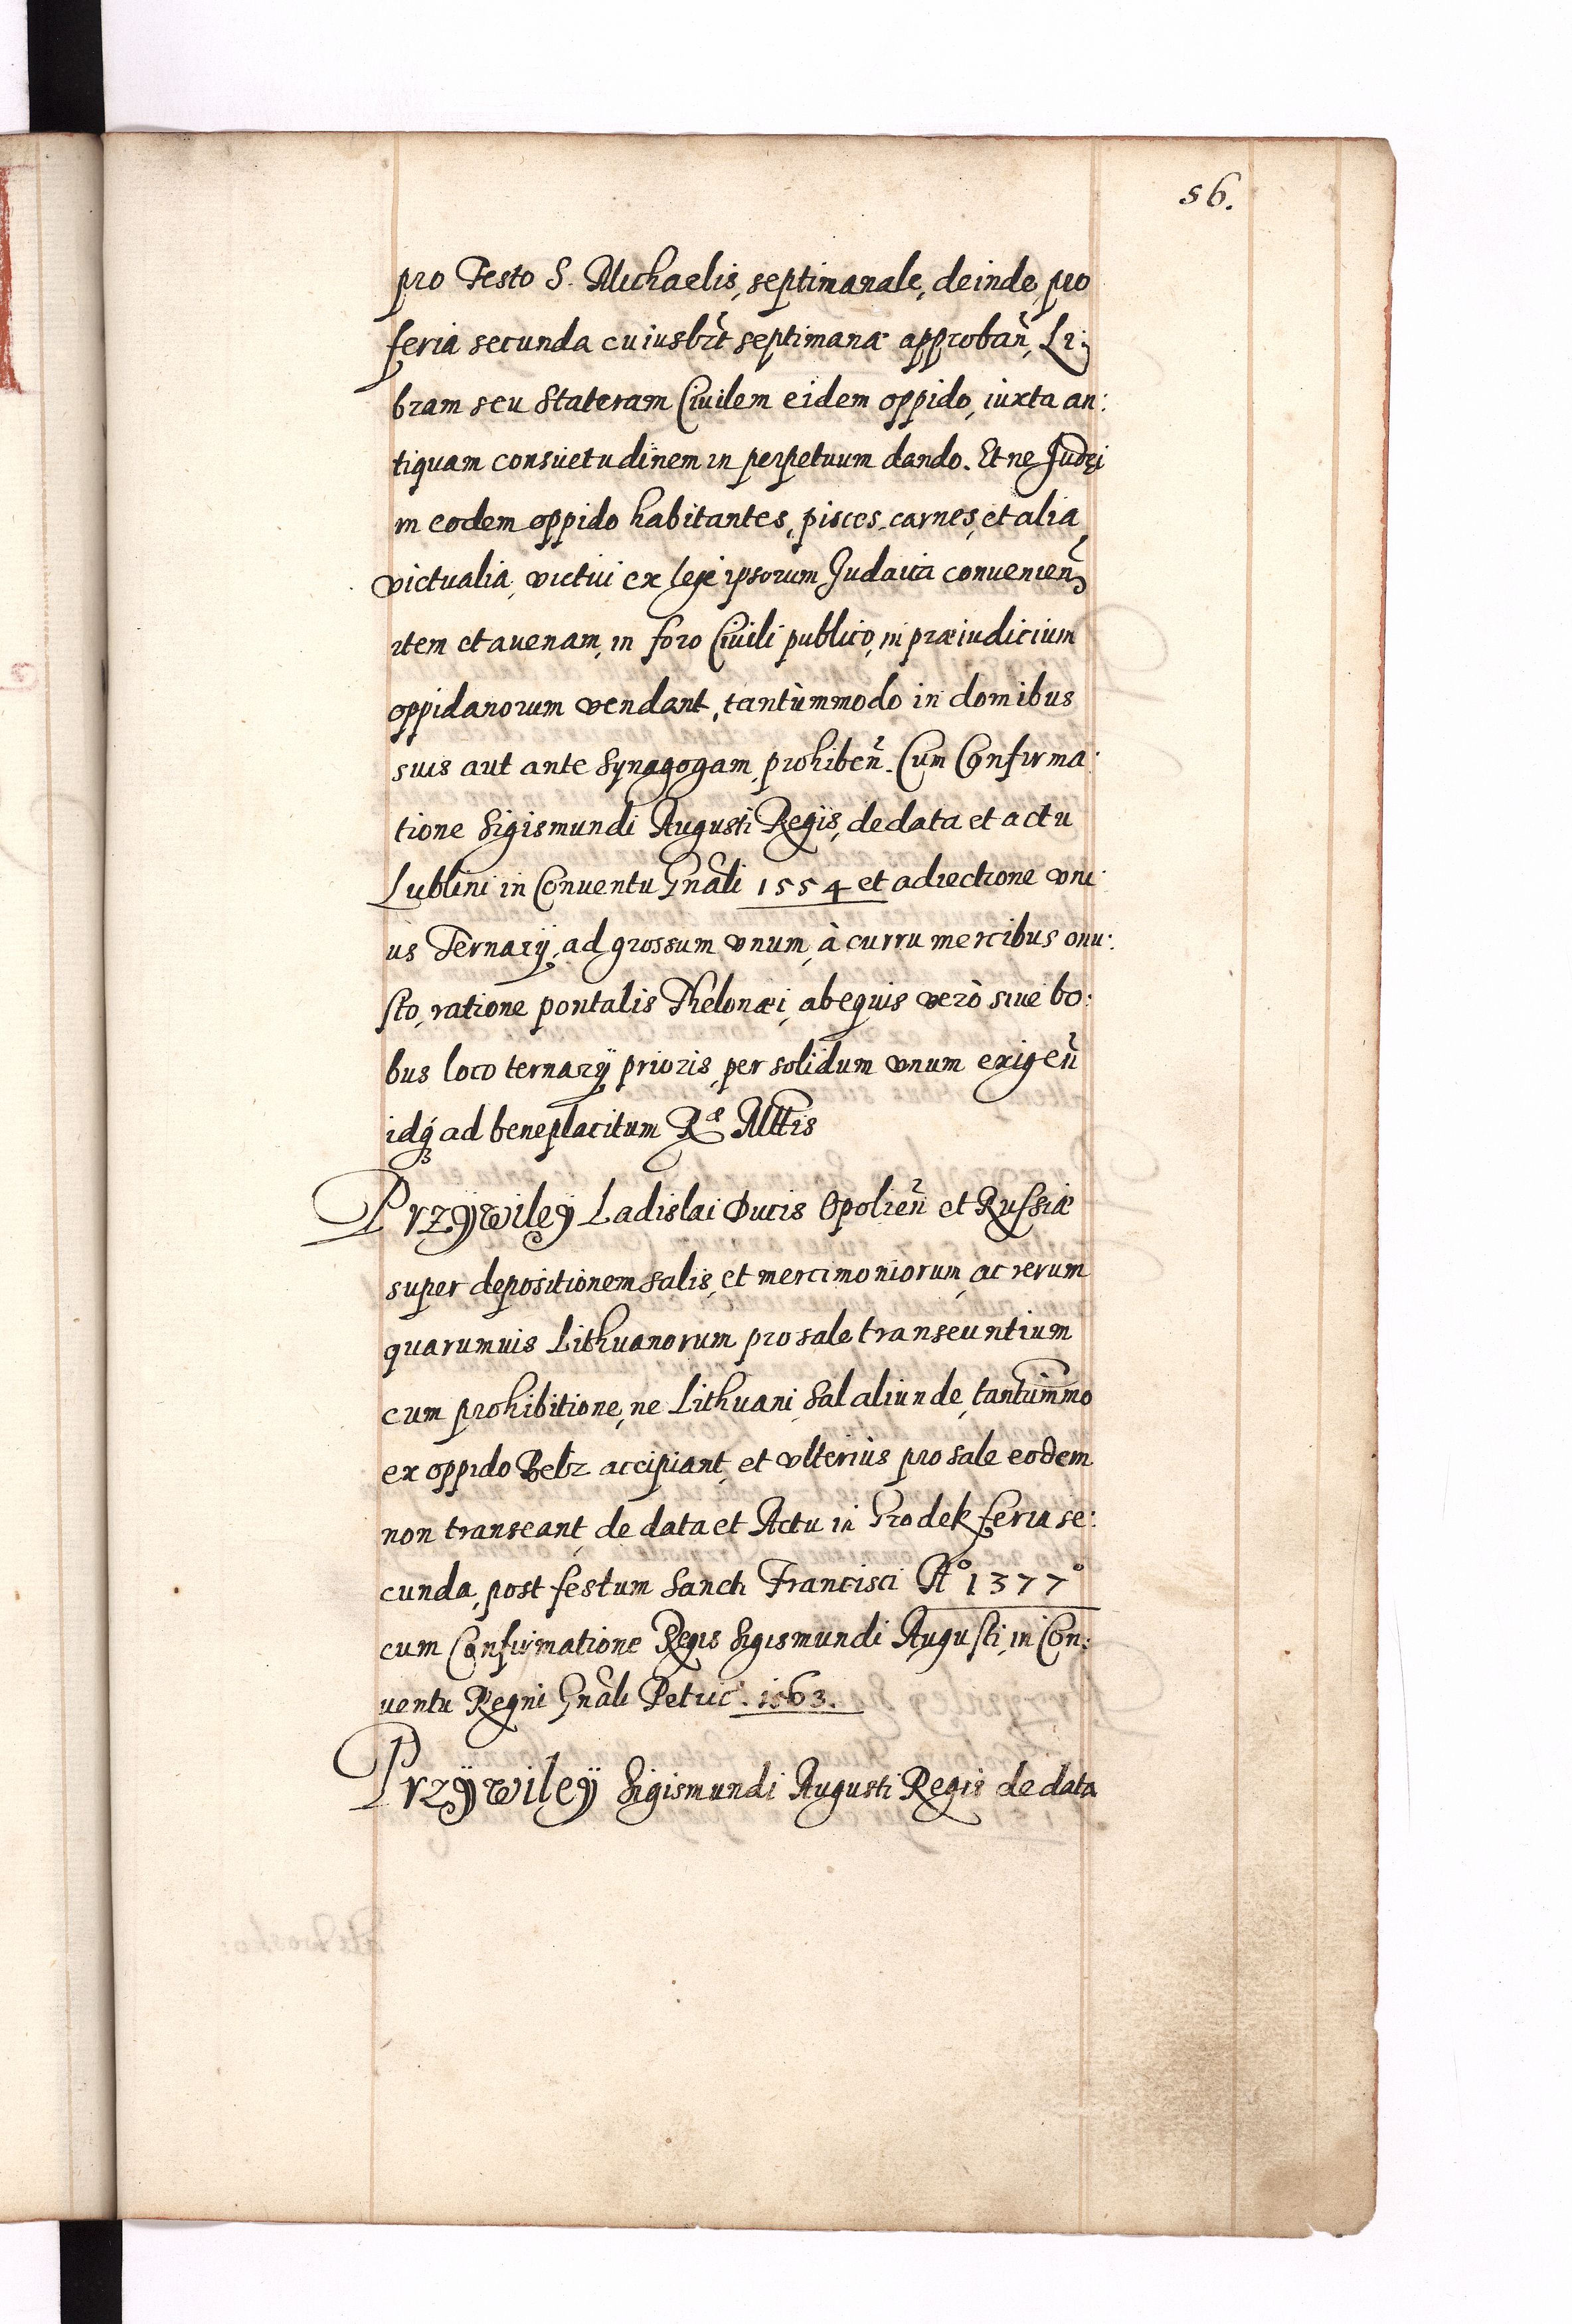 56.
pro Festo S. Michaelis, septimanale, deinde, pro
feria secunda cuiusbt septimanæ approbañ, Li:
bram seu Stateram Ciuilem eidem oppido, iuxta an:
tiquam consuetudinem in perpetuum dando. Et ne Judęi
in eodem oppido habitantes, pisces, carnes, et alia,
victualia, victui ex lege ipsorum Judaica conuenieñ
item et auenam, in foro Ciuili publico, in præiudicium
oppidanorum vendant, tantùmmodo in domibus
suis aut ante Synagogam, prohibeñ. Cum Confirma:
tione Sigismundi Augusti Regis, de data et actu
Lublini in Conuentu Gnãli 1554 et adiectione vni:
us Ternarij, ad grossum vnum, à curru mercibus onu:
sto, ratione pontalis Thelonæi, ab equis verò siue bo:
bus loco ternarij prioris, per solidum vnum exigeñ
idq́ ad beneplacitum Ræ Mttis
Przÿwileÿ Ladislai Ducis Opolieñ et Russiæ
super depositionem salis, et mercimoniorum, ac rerum
quarumuis Lithuanorum pro sale transeuntium
cum prohibitione, ne Lithuani, Sal aliunde, tantùmmo
ex oppido Belz accipiant, et vlteriùs pro sale eodem
non transeant, de data et Actu in Grodek feria se:
cunda, post festum Sancti Francisci Aº 1377º
cum Confirmatione Regis Sigismundi Augusti, in Con:
uentu Regni Gnãli Petric: 1563.
Przÿwileÿ Sigismundi Augusti Regis de data